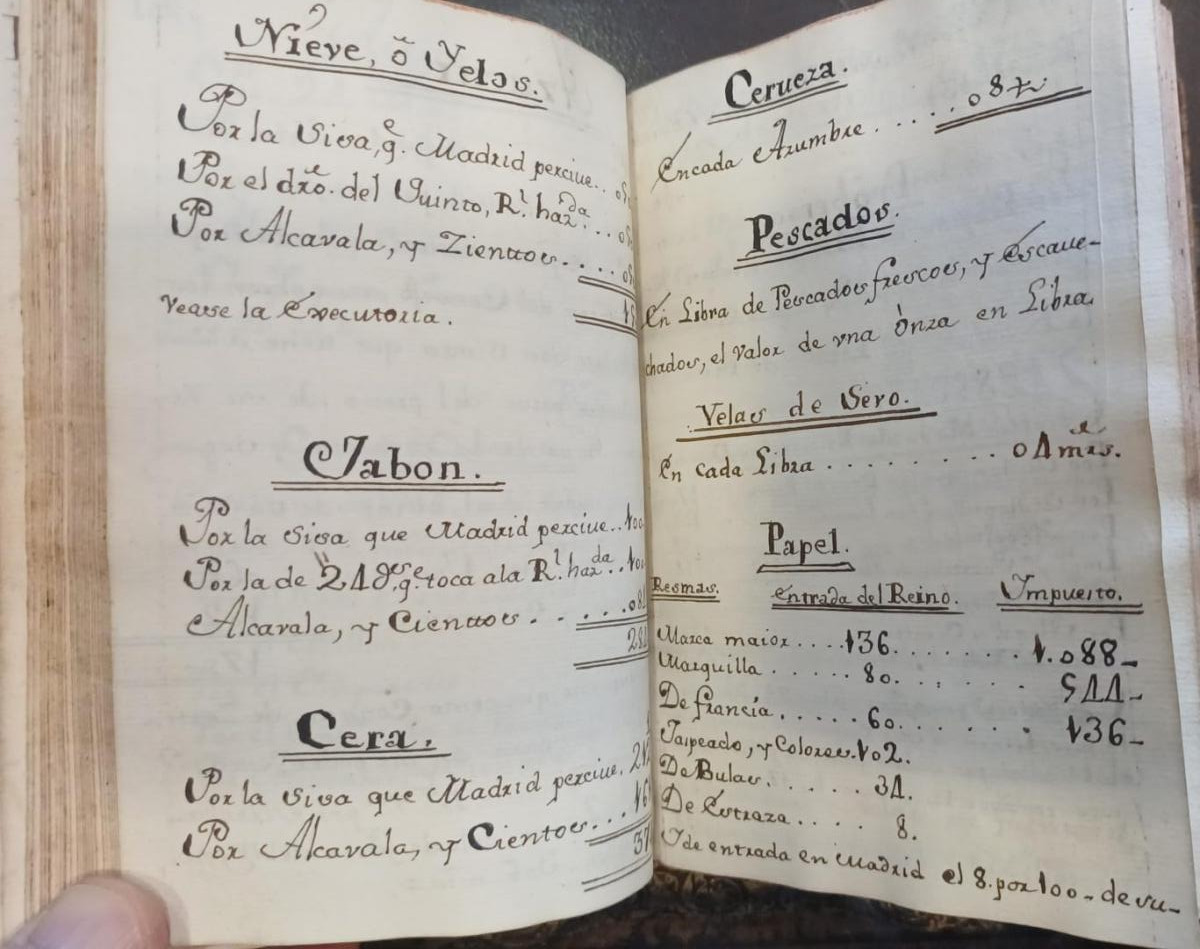 Nieve, ò Yelos.
Por la Sisa, q.e Madrid perciue..
Por el dr̃o. del Quinto, R.l haz.da...
Por Alcavala, y Zienttos....
Vease la Executoria.
Jabon.
Por la Sisa que Madrid perciue..
Por la de q.e toca ala R.l haz.da..
Alcavala, y Cienttos.....
Cera.
Por la Sisa que Madrid perciue.
Por Alcavala, y Cientos...
Cerueza.
Encada Azumbre.....08
Pescados.
En Libra de Pescados frescos, y Escaue-
chados, el valor de vna Onza en Libra
Velas de Sevo.
En cada Libra......... 04 mrs.
Papel.
Resmas. entrada del Reino. Ympuesto.
Marca maior....136........1.088-
Marquilla.....80....... 544-
De francia.....60...... 136-
Jaspeado, y Colores.102.
De Bulas.....34.
De Estraza....8.
Y de entrada en Madrid el 8. por 100- de su-